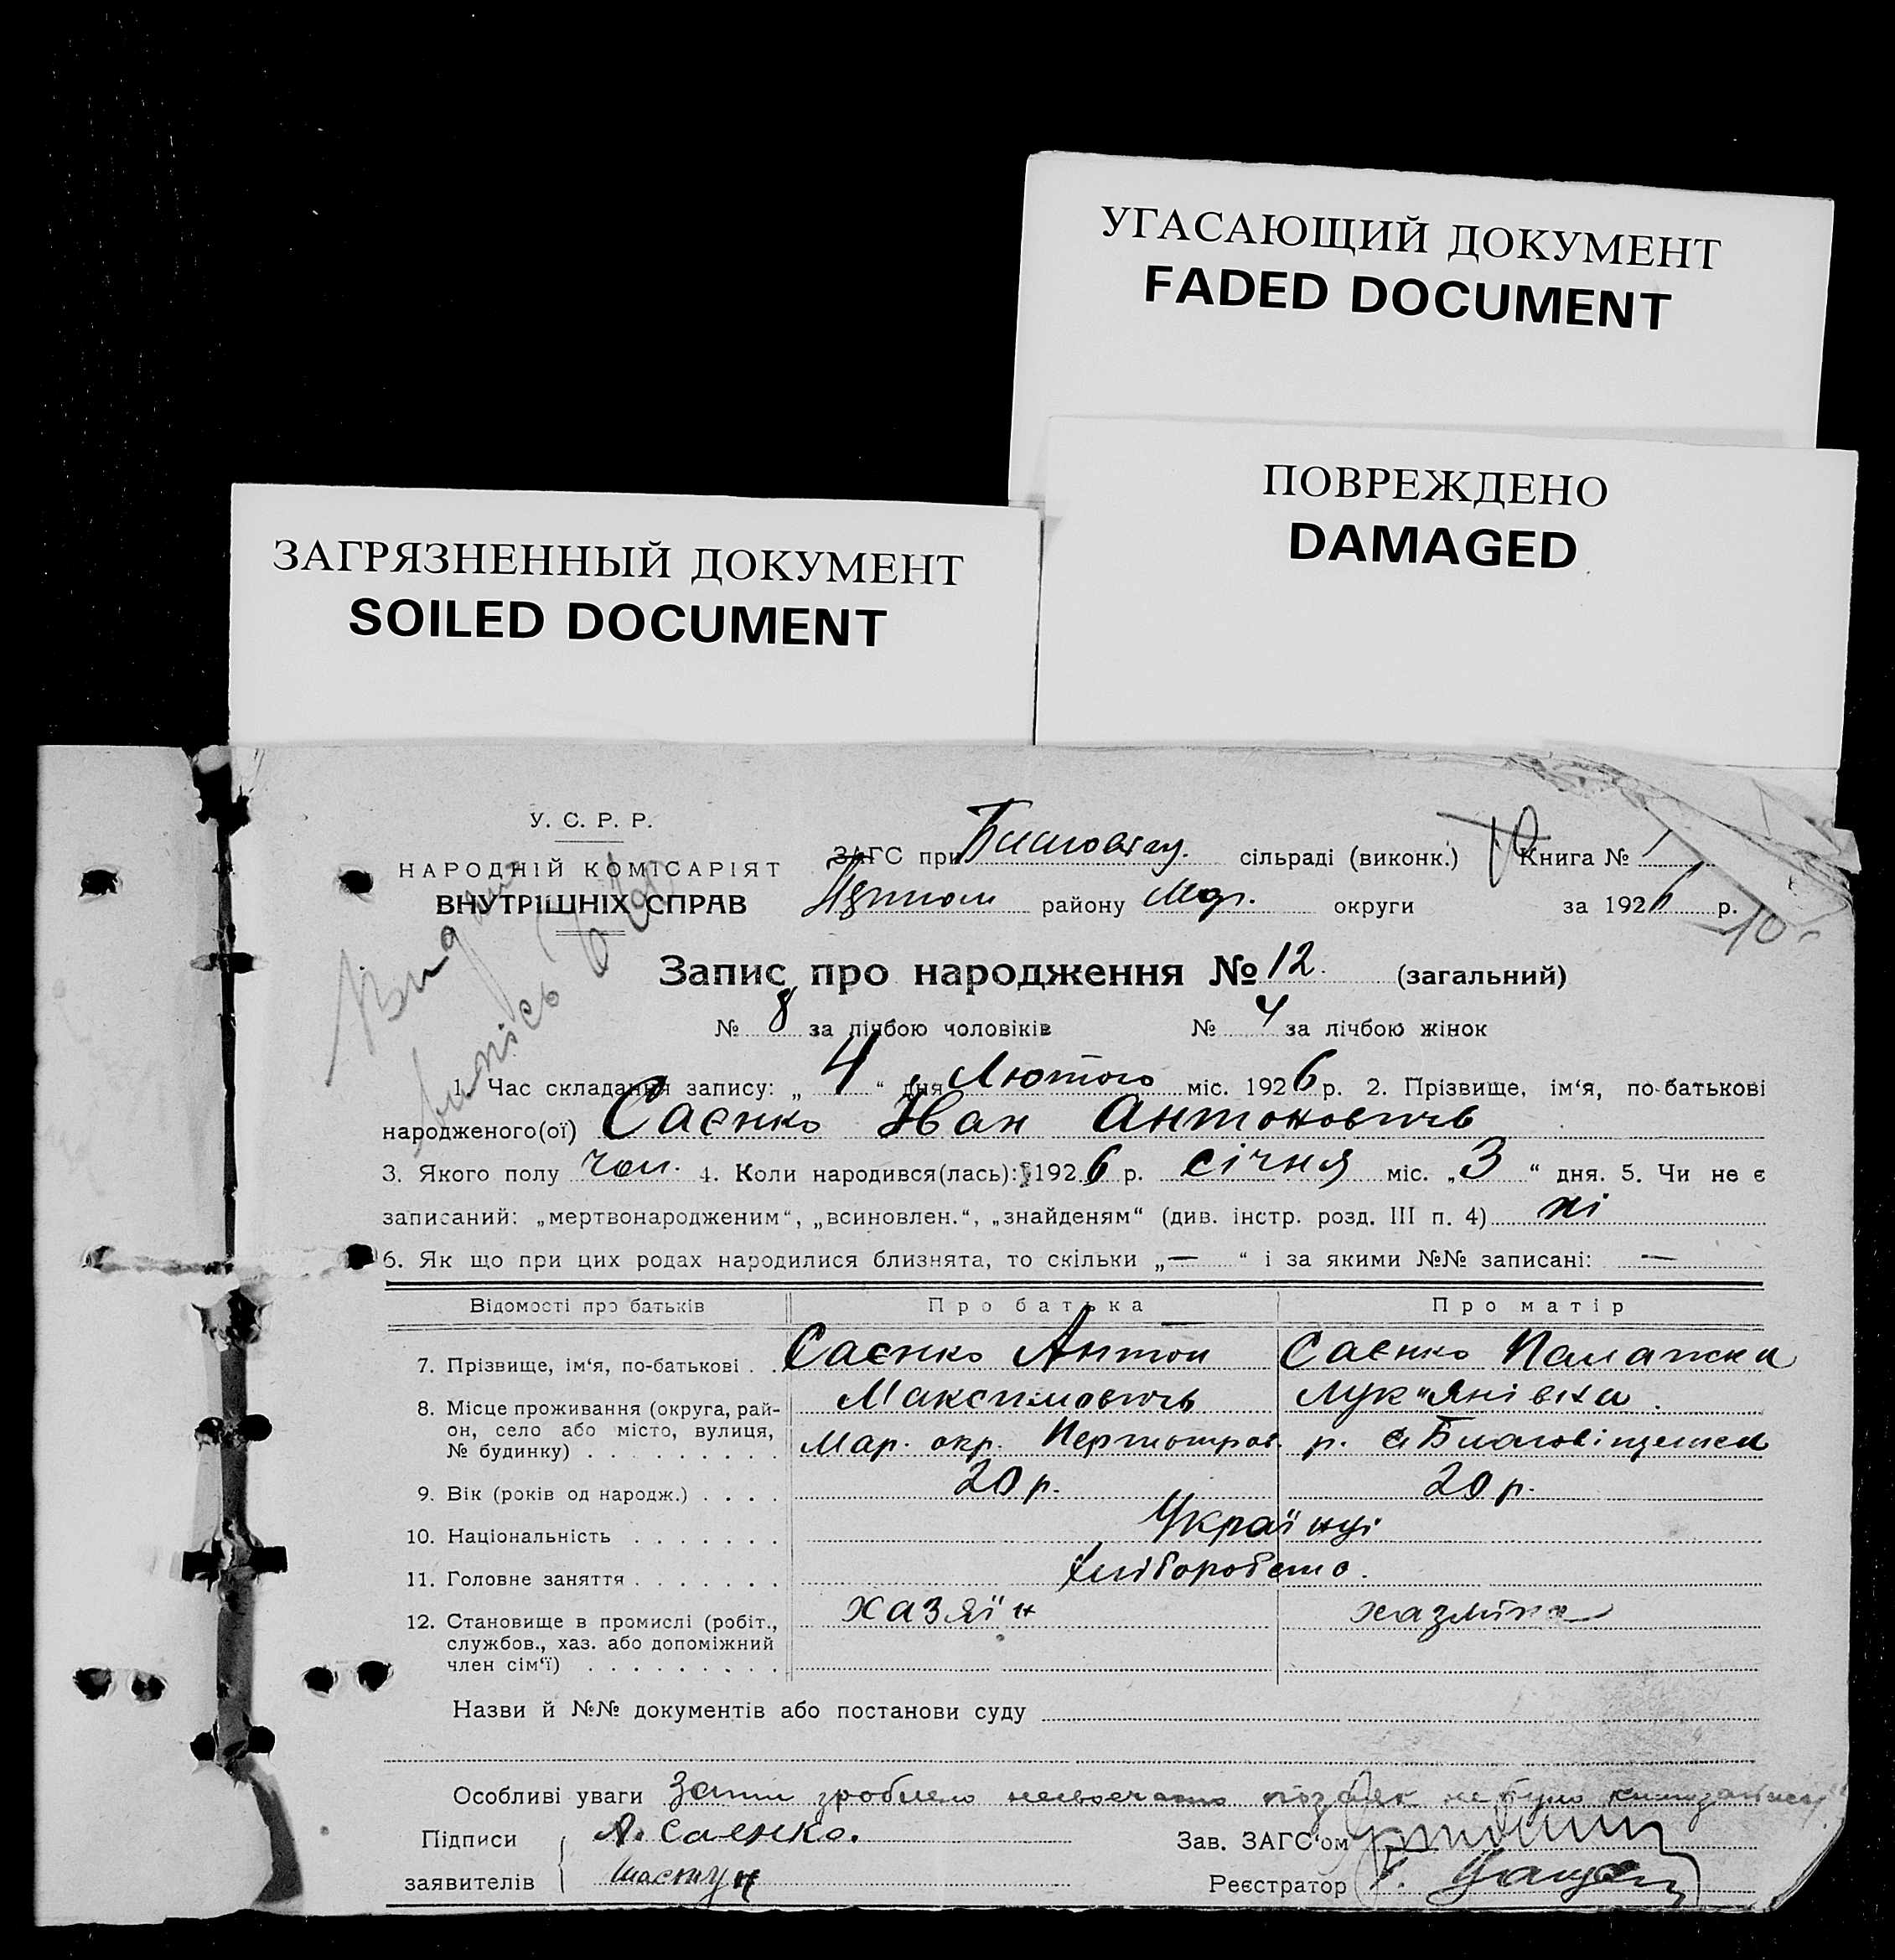 УГАСАЮЩИЙ ДОКУМЕНТ
FADED DOCUMENT
ПОВРЕЖДЕНО
DAMAGED
ЗАГРЯЗНЕННЫЙ ДОКУМЕНТ
SOILED DOCUMENT
У. С. Р. Р.
НАРОДНІЙ КОМІСАРІЯТ
ВНУТРІШНІХ СПРАВ
ЗАГС при сільраді (виконк.) Книга № 1
району Мар. округи за 1926 р.
10
Запис про народження № 12. (загальний)
№ 8 за лічбою чоловіків № 4 за лічбою жінок
1. Час складання запису: „ 4 “ дня Лютого міс. 1926 р. 2. Прізвище, ім‘я, по-батькові
народженого(ої) Саєнко Іван Антоновичь
3. Якого полу чол. 4. Коли народився(лась): 1926 р. січня міс. „3“ дня. 5. Чи не є
записаний: „мертвонародженим“, „всиновлен.“, „знайденям“ (див. інстр. розд. III п. 4) ні
6. Як що при цих родах народилися близнята, то скільки „—“ і за якими №№ записані: —
Відомості про батьків Про батька Про матір
7. Прізвище, ім‘я, по-батькові . . Саєнко Антон Саєнко Палажка
Максимовичь Лук"янівна.
8. Місце проживання (округа, рай-
он, село або місто, вулиця,
№ будинку) . . . . . . . . . Мар. окр. р. с
9. Вік (років од народж.) . . . . 20 р. 20 р.
10. Національність . . . . . . . Українці
11. Головне заняття . . . . . . . Хліборобство.
12. Становище в промислі (робіт., хазяїн хазяїна
службов., хаз. або допоміжний
член сім‘ї) . . . . . . . . .
Назви й №№ документів або постанови суду
Особливі уваги Запис зроблено несвоечасно позаяк не було книг запису
Підписи А. Саенко.
заявителів Шастун
Зав. ЗАГС‘ом
Реєстратор Г.